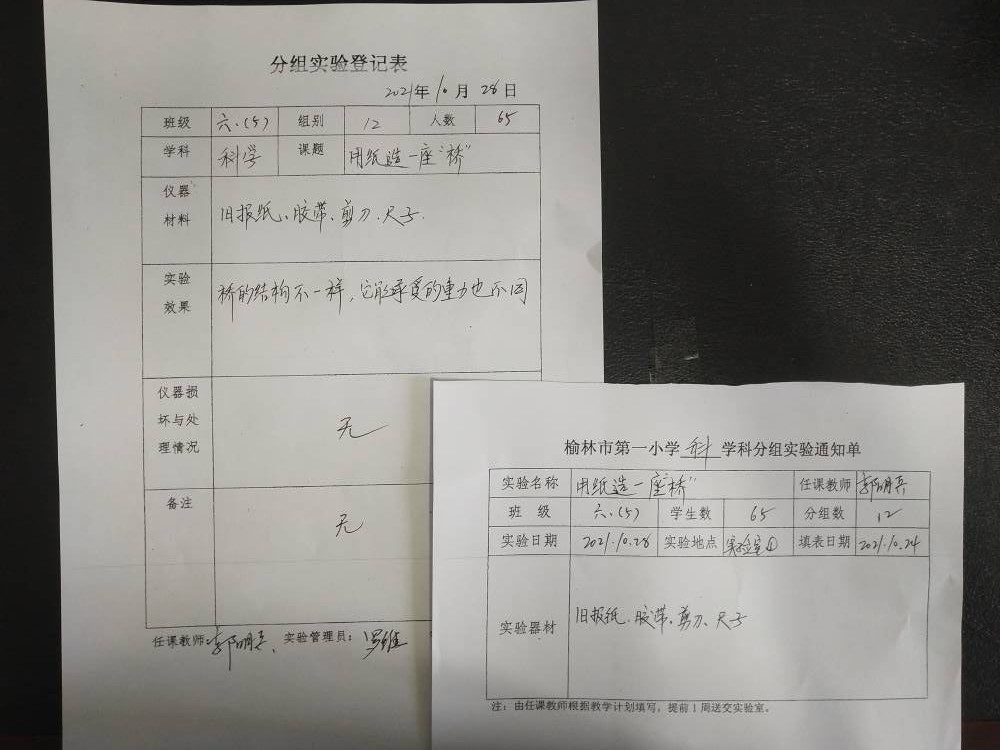 分组实验登记表
2021年10月28日
班级 六.(5) 组别 12 人数 65
学科 科学 课题 用纸造一座"桥"
仪器材料 旧报纸、胶带、剪刀、尺子.
实验效果 桥的结构不一样,它能承受的重力也不同
仪器损坏与处理情况 无
备注 无
任课教师: 郭明兵、 实验管理员: 罗维
榆林市第一小学 科 学科分组实验通知单
实验名称 用纸造一座"桥" 任课教师 郭明兵
班 级 六.(5) 学生数 65 分组数 12
实验日期 2021.10.28 实验地点 实验室① 填表日期 2021.10.24
实验器材 旧报纸、胶带、剪刀、尺子
注:由任课教师根据教学计划填写,提前1周送交实验室。